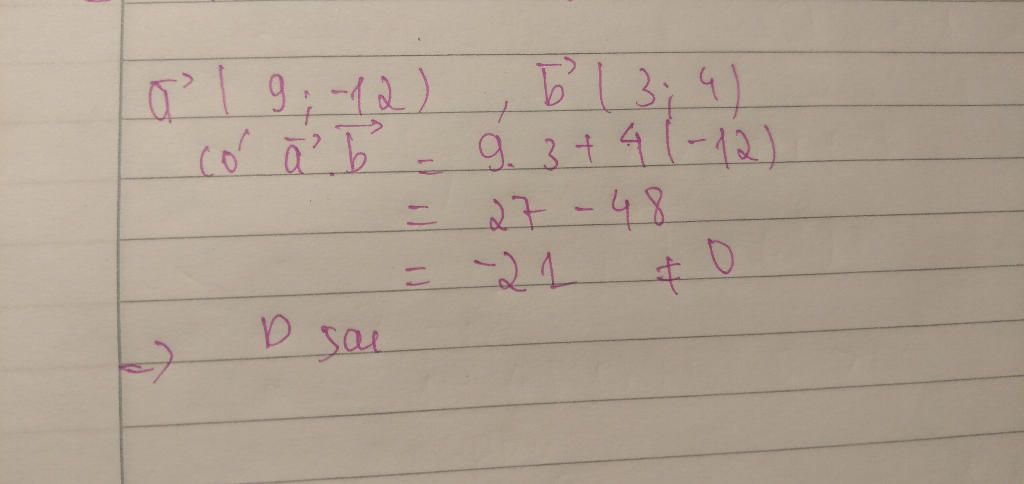 a⃗ ( 9; -12) , b⃗ ( 3; 4)
có a⃗ . b⃗ = 9. 3 + 4 (-12)
= 27 - 48
= -21 ≠ 0
=> D sai